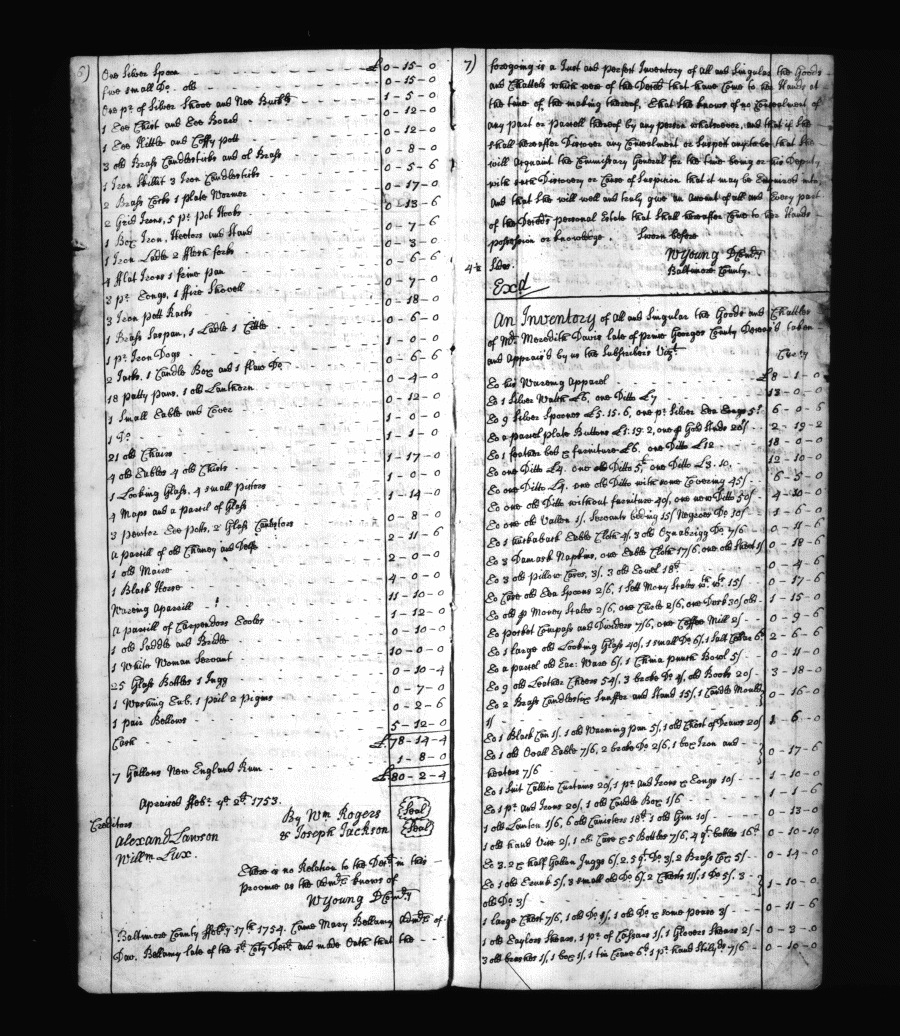 6)
One Silver Spoon £ 0-15-0
five small Do. old 0-15-0
One pr. of Silver Shooe and Nee Buckls 1-5-0
1 Tee Chist and Tee Board 0-12-0
1 Tee Kittle and Coffy pott 0-12-0
3 old Brass Candlesticks and ol Brass 0-8-0
1 Iron Skillit 3 Iron Candlesticks 0-5-6
2 Brass Cocks 1 plate Wormer 0-17-0
2 Grid Irons, 5 pr. Pot Hooks 0-13-6
1 Box Iron, Heeters and Stand 0-7-6
1 Iron Ladle 2 fflesh forks 0-3-0
4 fflat Irons 1 frine pan 0-6-6
3 pr. Tongs, 1 ffire Shovell 0-7-0
3 Iron pott Racks 0-18-0
1 Brass Saspan, 1 Ladle 1 Cittle 0-6-0
1 pr. Iron Dogs 1-0-0
2 Jacks, 1 Candle Box and 1 flaw Do 0-6-6
18 patty pans, 1 old Lanthorn 0-4-0
1 Small Table and Cover 0-12-0
1 Do 1-0-0
21 old Chairs 1-1-0
4 old Tables 4 old Chists 1-17-0
1 Looking Glass, 4 small Picters 1-0-0
4 Maps and a parcil of Glass 1-14-0
3 pewter Tee potts, 2 Glass Canesters 0-8-0
a parcill of old Chaney and Delf 2-11-6
1 old Maire 2-0-0
1 Black Horse 4-0-0
Wareing Aparrill 11-10-0
a parrill of Carpendors Tooles 1-12-0
1 old Saddle and Bridle 0-10-0
1 White Woman Servant 10-0-0
25 Glass Bottles 1 Jugg 0-10-4
1 Washing Tub, 1 pail 2 Pigins 0-7-0
1 pair Bellows 0-2-6
Cash 5-12-0
£ 78-14-4
7 Gallons New England Rum 1-8-0
£ 80-2-4
Apraised ffebr. ye. 2d. 1753.
Creditors By Wm Rogers (Seal)
Alexand Lawson & Joseph Jackson (Seal)
Willm Lux.
There is no Relation to the Decd. in this
province as the Admx knows of
W Young D Comry
Baltimore County ffebry 17th 1754. Came Mary Bellamy Admx of
Dav. Bellamy late of the sd. Coty Decd. and made Oath that the
7) foregoing is a Just and perfect Inventory of all and Singular the Goods
and Chattels which were of the Deced that have Come to her Hands at
the time of the making thereof, that she knows of no Concealment of
any part or Parcell thereof by any person whatsoever, and that if she
shall hereafter Discover any Concealment or Suspect any to be that she
will Acquaint the Commissary General for the time being or his Deputy
with such Discovery or Cause of Suspicion that it may be Enquired into
and that she will well and truly give an account of all and Every part
of the Deceds personal Estate that shall hereafter Come to her Hands
possession or knowledge. Sworn before
W Young D Comry
4½ Sides. Baltimore County.
Exd
An Inventory of all and Singular the Goods and Chattles
of Mr. Meredith Davis late of prince Georges County Deceas'd taken
and Apprais'd by us the Subscribers Vizt.
Curcy
To his Wareing Apparel £ 8-1-0
To 1 Silver Watch £6, one Ditto £7 13-0-0
To 9 Silver Spoones £5.15.6, one pr. Silver Tea Tongs 5/ 6-0-6
To a parcel plate Buttons £1.19.2, one pr Gold Studs 20/ 2-19-2
To 1 feather bed & furniture £6, one Ditto £12 18-0-0
To one Ditto £4. one old Ditto 5£ one Ditto £3.10. 12-10-0
To one Ditto £4. one old Ditto with some Covering 45/ 6-5-0
To one old Ditto without furniture 40/, one new Ditto 50/ 4-10-0
To one old Vallen 1/, Servants beding 15/ Negroes Do 10/ 1-6-0
To 1 huckaback Table Cloth 4/, 3 old Oznabrigg Do. 7/6 0-11-6
To 3 Damask Napkins, one Table Cloth 17/6, one old Sheet 1/ 0-18-6
To 3 old Pillow Cases, 3/, 3 old Towel 18d. 0-4-6
To Case old Tea Spoons 2/6, 1 Sett Mony Scales wth. wts. 15/ 0-17-6
To old pr Money Scales 2/6, one Cradle 2/6, one Desk 30/ old 1-15-0
To pocket Compass and Dividers 7/6, one Coffee Mill 2/ 0-9-6
To 1 large old Looking Glass 40/, 1 small Do 6/, 1 Salt Cellar 6d 2-6-6
To a parcel old Ear: Ware 6/, 1 China punch Bowl 5/ 0-11-0
To 9 old Leather Cheers 54/, 3 broke Do 4/, old Books 20/ 3-18-0
To 2 Brass Candlestix Snuffer and Stand 15/, 1 Candle Mould
1/ 0-16-0
To 1 Black Can 1/, 1 old Warming Pan 5/, 1 old Chest of Drawrs 20/ 1-6-0
To 1 old Ovall Table 7/6, 2 broke Do 2/6, 1 box Iron and
heaters 7/6 0-17-6
To 1 Suit Callico Curtains 20/, 1 pr. and Irons & Tongs 10/ 1-10-0
To 1 pr. and Irons 20/, 1 old Candle Box 1/6 1-1-6
1 old Lanton 1/6, 6 old Canisters 18d. 1 old Gun 10/ 0-13-0
1 old hand Vice 2/, 1 old Case & 5 Bottles 7/6, 4 qt. bottles 16d 0-10-10
To 3. 2 & half Gallon Juggs 6/, 2. 5 qt. Do 3/, 2 Brass Cox 5/ 0-14-0
To 1 old Trunk 5/, 3 small old Do 6/, 2 Chests 11/, 1 Do 5/, 3
old Do 3/ 1-10-0
1 large Chest 7/6, 1 old Do 1/, 1 old Do & some pease 3/ 0-11-6
1 old Taylors Shears, 1 pr. of Cissars 1/, 1 Glovers Shears 2/ 0-3-0
3 old brushes 1/, 1 box 1/, 1 tin Cane 6d, 1 pr. hand Stillyds 7/6 0-10-0